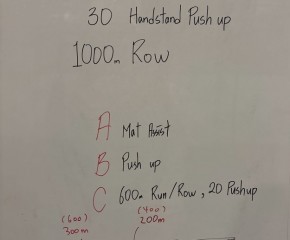 30 Handstand Push up
1000m Row
A Mat Assist
B Push up
C 600m Run/Row, 20 Pushup
(600) (400)
300m 200m